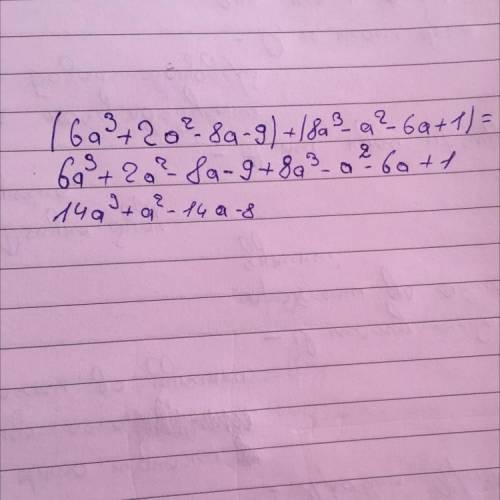 (6a³+2a²-8a-9)+(8a³-a²-6a+1)=
6a³+2a²-8a-9+8a³-a²-6a+1
14a³+a²-14a-8